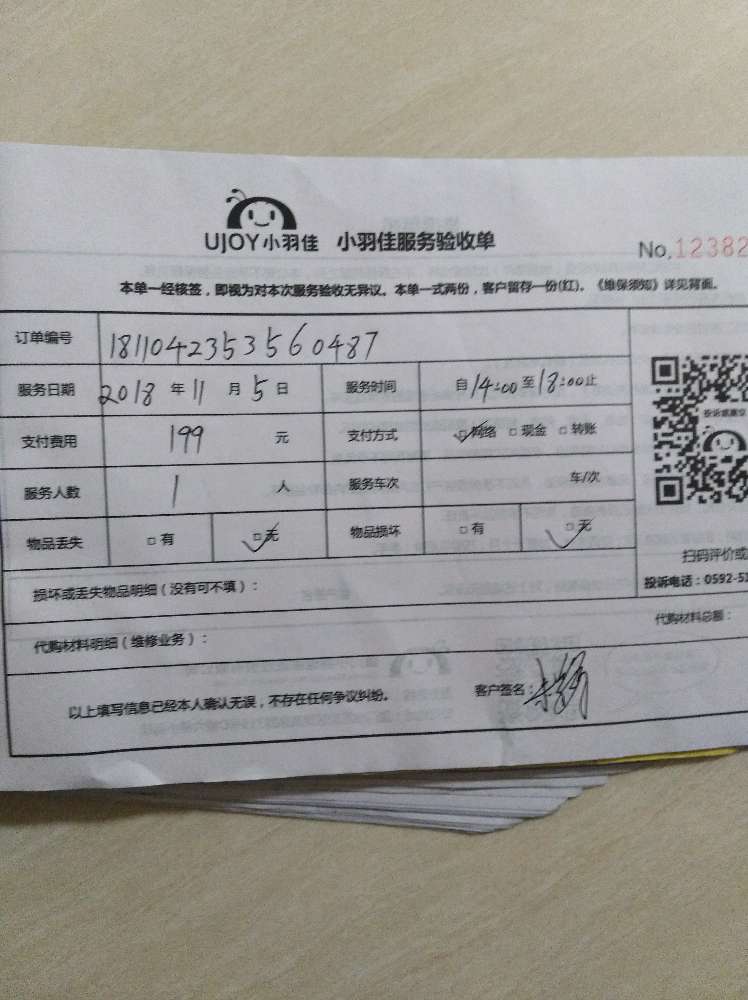 UJOY小羽佳 小羽佳服务验收单
No.12382
本单一经核签，即视为对本次服务验收无异议。本单一式两份，客户留存一份(红)。《维保须知》详见背面。
订单编号 1811042353560487
服务日期 2018 年 11 月 5 日 服务时间 自 14:00 至 18:00 止
支付费用 199 元 支付方式 □网络 □现金 □转账
服务人数 1 人 服务车次 车/次
物品丢失 □有 □无 物品损坏 □有 □无
扫码评价或
损坏或丢失物品明细（没有可不填）：
投诉电话：0592-51
代购材料明细（维修业务）：
代购材料总额：
以上填写信息已经本人确认无误，不存在任何争议纠纷。 客户签名：